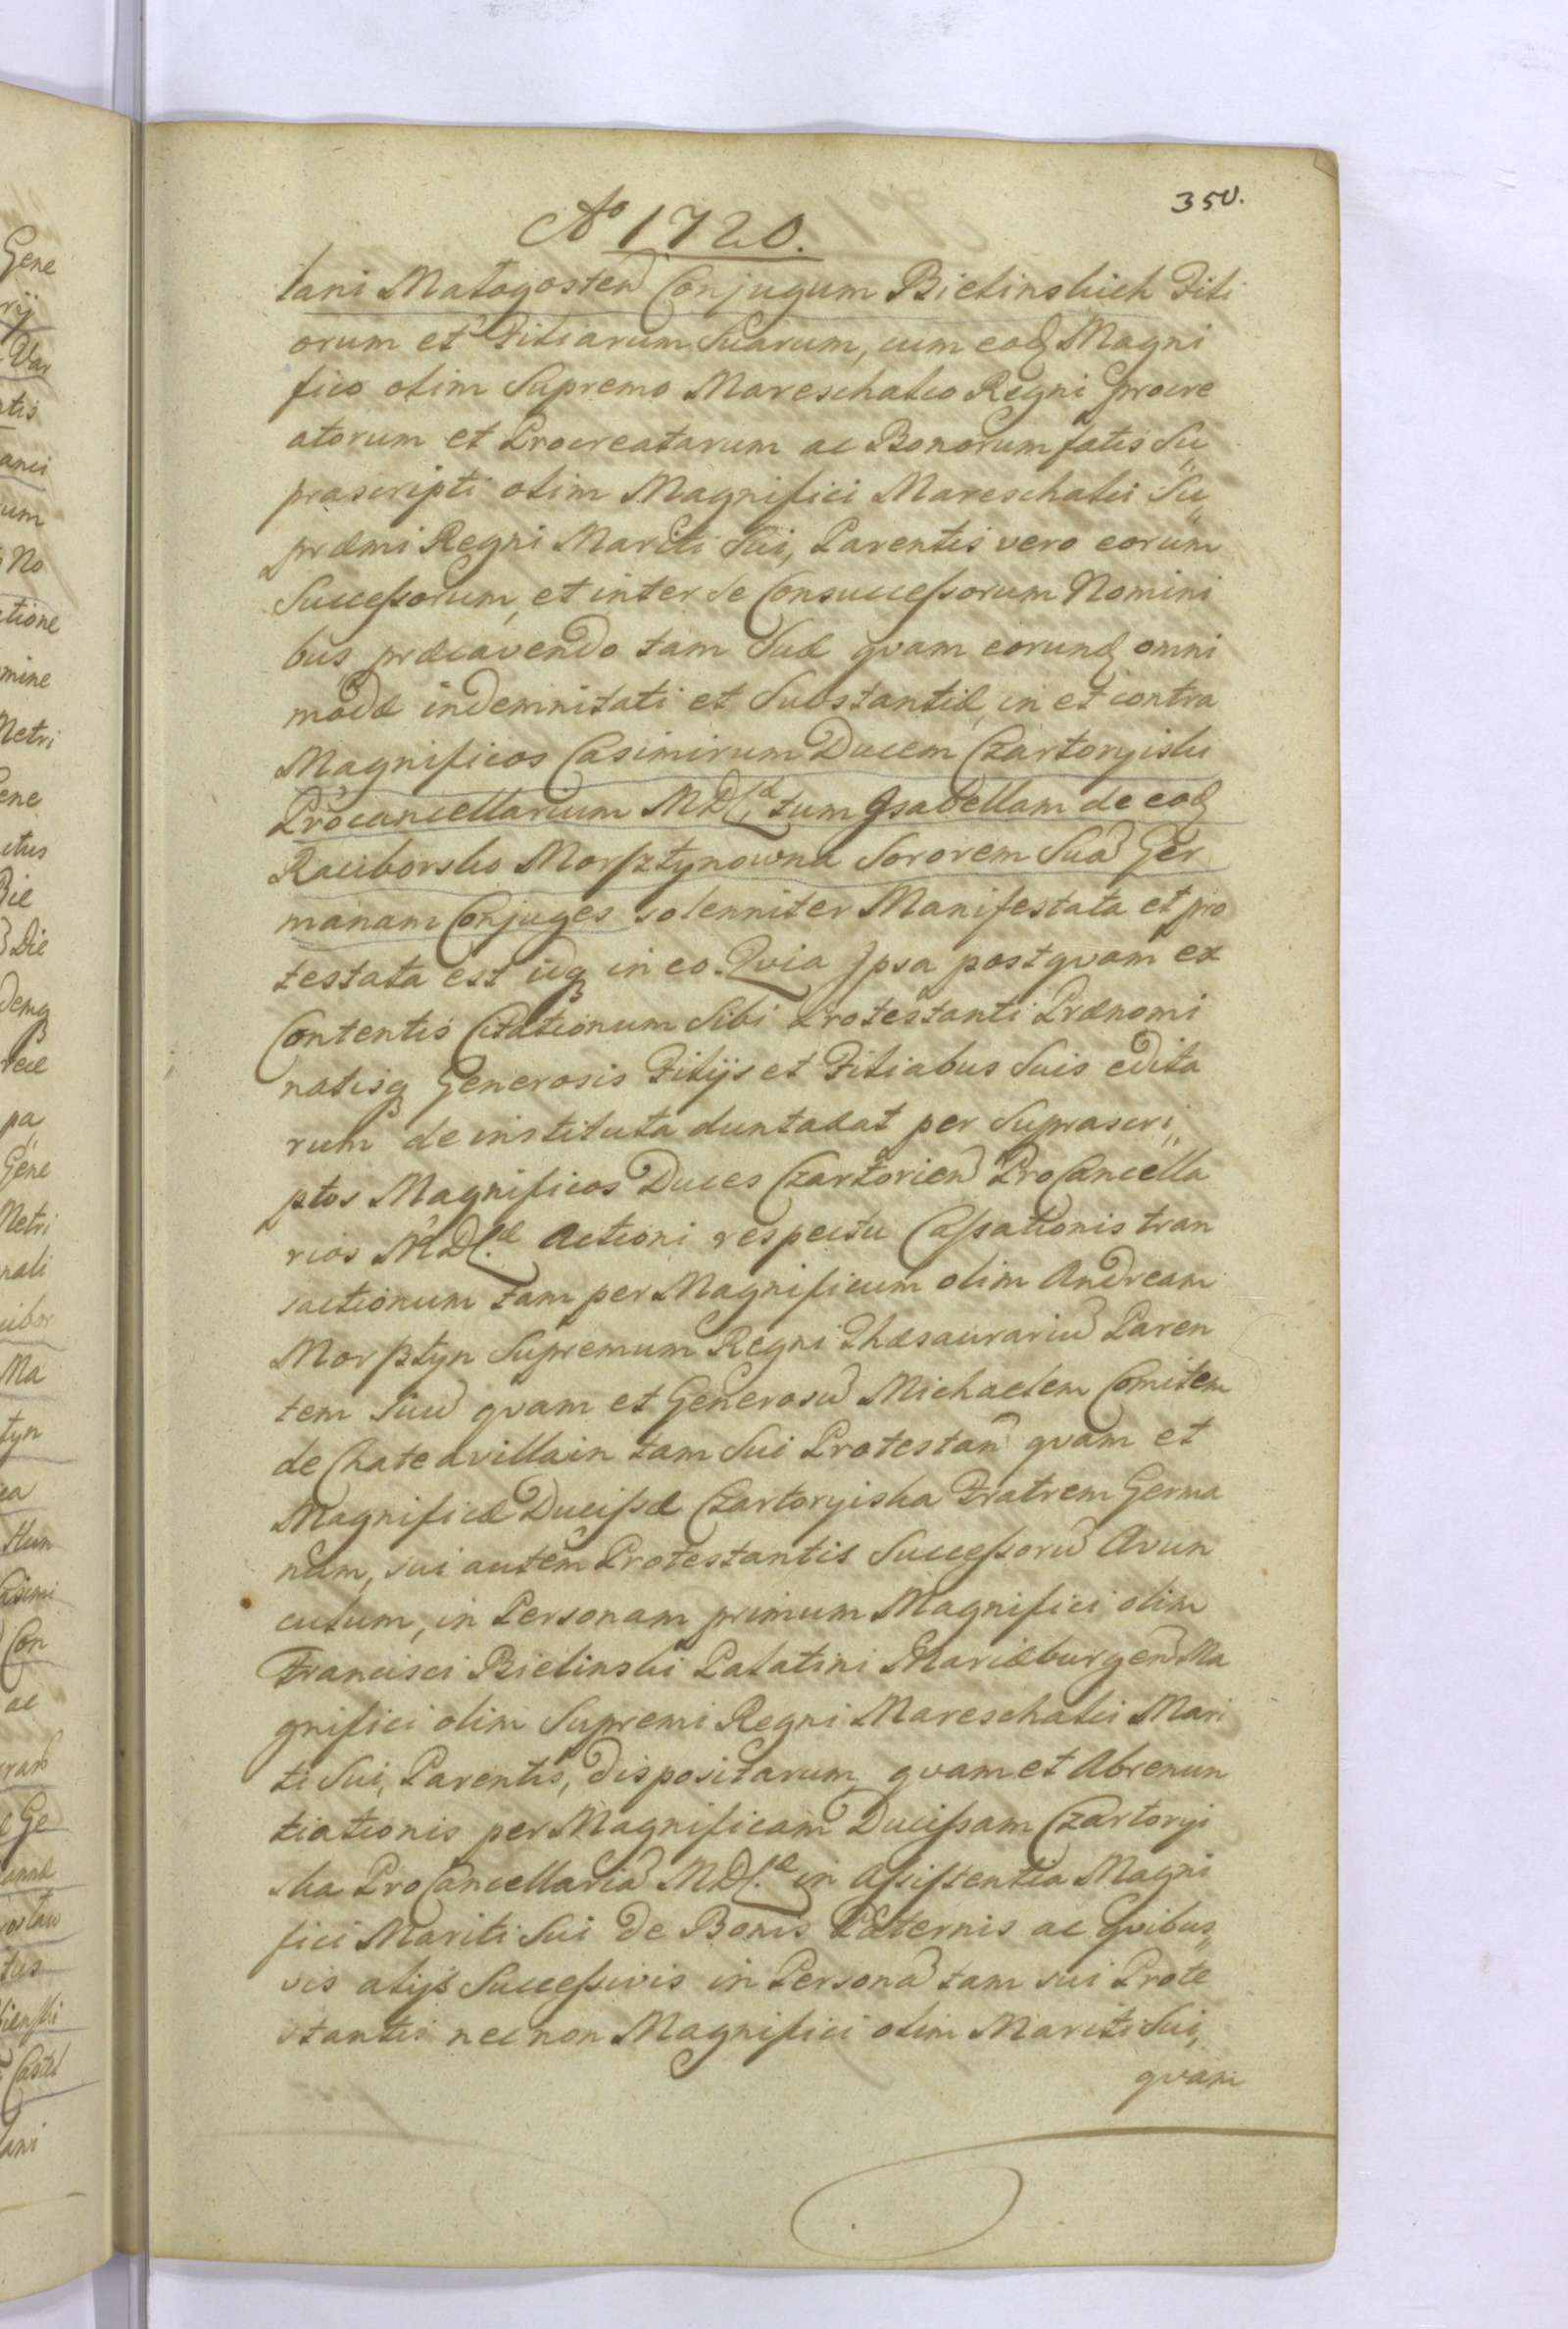 350.
Aº 1720.
lani Małogosten Conjugum Bielinskich Fili
orum et Filiarum Suarum, cum eoq Magni
fico olim Supremo Mareschalco Regni procre
atorum et Procreatarum ac Bonorum fatis Su
prascripti olim Magnifici Mareschalci Su
præmi Regni Mariti Sui, Parentis vero eorum
Successorum, et inter se Consuccessorum Nomini
bus præcavendo tam Suæ qvam eorunq omni
modæ indemnitati et Substantiæ, in et contra
Magnificos Casimirum Ducem Czartoryiski
Procancellarium MDLæ, tum Isabellam de eoq
Raciborsko Morsztynowna Sororem Suā Ger
manam Conjuges solenniter Manifestata et pro
testata est idq in eo. Qvia Ipsa postqvam ex
Contentis Citationum Sibi Protestanti Prænomi
natisq Generosis Filijs et Filiabus Suis edita
rum de instituta duntaxat per Suprascri„
ptos Magnificos Duces Czartorien ProCancella
rios MDLæ Actioni respectu Cassationis tran
sactionum tam per Magnificum olim Andream
Morsztyn Supremum Regni Thæsaurariū Paren
tem Suū qvam et Generosū Michaelem Comitem
de Chateavillain tam Sui Protestan qvam et
Magnificæ Ducissæ Czartoryiska Fratrem Germa
num, sui autem Protestantis Successorū Avun
culum, in Personam primum Magnifici olim
Francisci Bielinski Palatini Mariæburgen Ma
gnifici olim Supremi Regni Mareschalci Mari
ti Sui, Parentis, dispositarum, qvam et Abrenun
tiationis per Magnificam Ducissam Czartoryi
ska ProCancellariā MDLæ in Assistentia Magni
fici Mariti Sui de Bonis Paternis ac qvibus„
vis alijs Successivis in Personā tam sui Prote
stantis nec non Magnifici olim Mariti Sui,
qvam